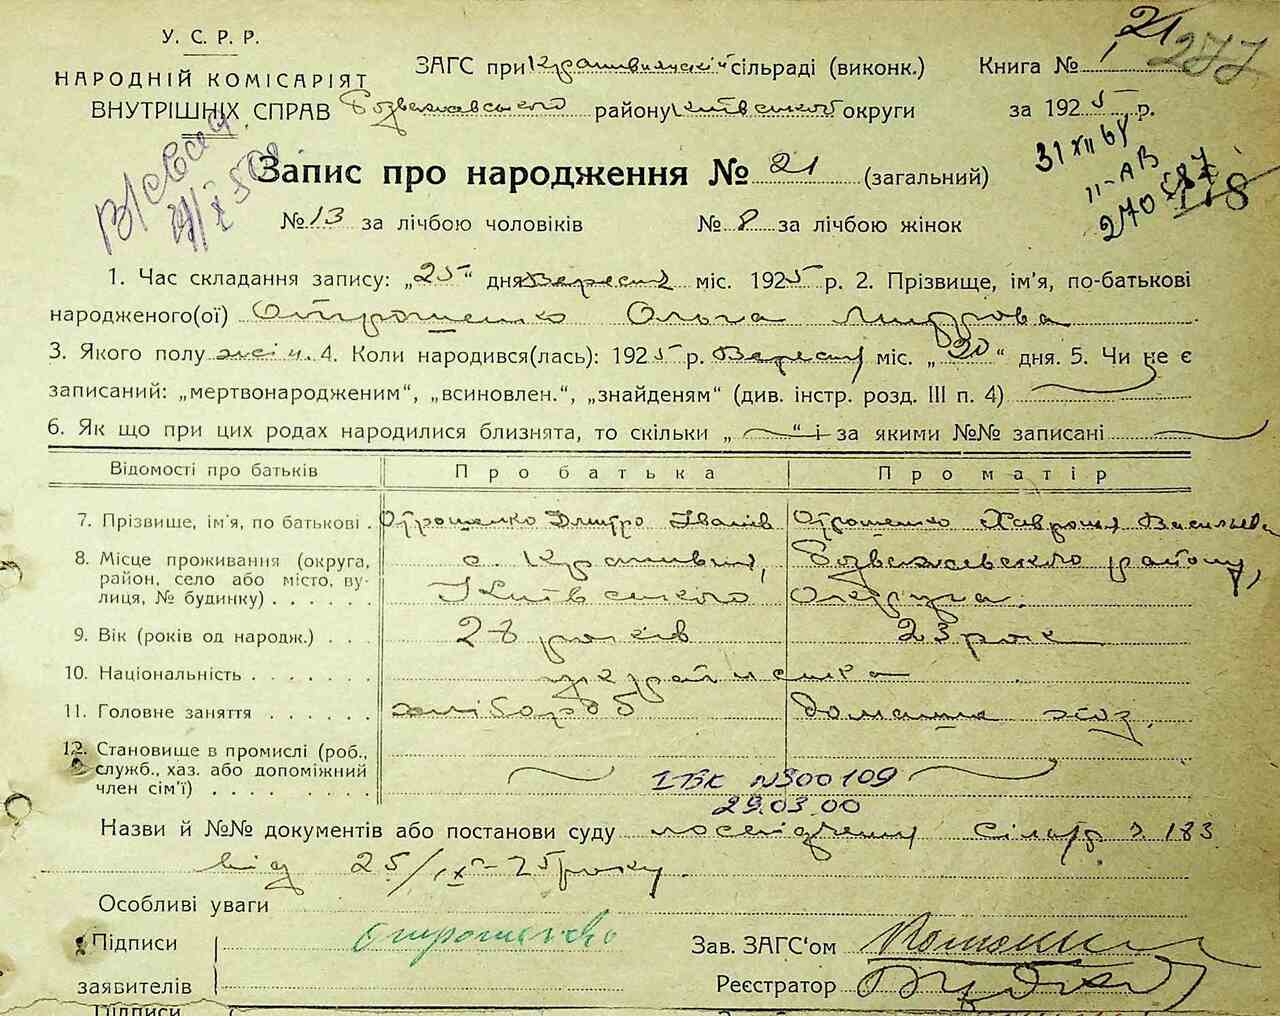 У. С. Р. Р.
НАРОДНІЙ КОМІСАРІЯТ
ВНУТРІШНІХ СПРАВ
ЗАГС при сільраді (виконк.) Книга № 21 277
Розважевського району Київського округи за 1925 р.
31 XII 68
II-АВ
270587
118
Запис про народження № 21 (загальний)
№ 13 за лічбою чоловіків № 8 за лічбою жінок
1. Час складання запису: „25“ дня Вересня міс. 1925 р. 2. Прізвище, ім'я, по-батькові
народженого(ої) Отрошенко Ольга
3. Якого полу жін. 4. Коли народився(лась): 1925 р. Вересня міс. „20“ дня. 5. Чи не є
записаний: „мертвонародженим“, „всиновлен.“, „знайденям“ (див. інстр. розд. III п. 4)
6. Як що при цих родах народилися близнята, то скільки „ “ і за якими №№ записані
Відомості про батьків Про батька Про матір
7. Прізвище, ім'я, по батькові. Отрошенко Дмитро Іванів Отрошенко Хавроня Васильева
8. Місце проживання (округа, с. Кропивня, Розважевського району,
район, село або місто, ву-
лиця, № будинку) Київського Округа.
9. Вік (років од народж.) 28 років 23 рок
10. Національність украінська
11. Головне заняття хлібороб домашнє хоз.
12. Становище в промислі (роб.,
служб., хаз. або допоміжний
член сім'ї)
І-БК №300109
29.03.00
Назви й №№ документів або постанови суду посвідчення Сілради 183
від 25/IX-25 року.
Особливі уваги
Підписи Отрошенко Зав. ЗАГС'ом
заявителів Реєстратор
Підписи